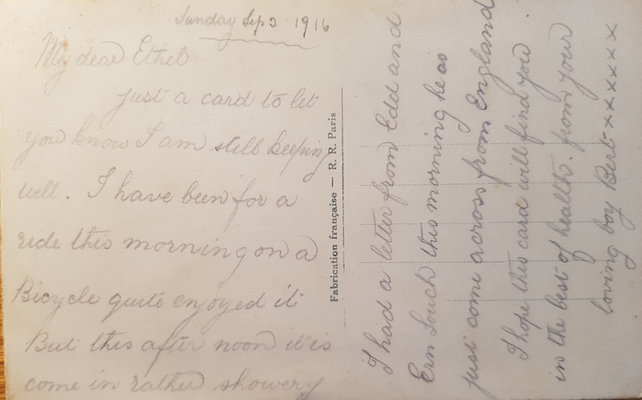 Sunday Sep 3 1916
My dear Ethel
just a card to let
you know I am still keeping
well. I have been for a
ride this morning on a
Bicycle quite enjoyed it
But this after noon it is
come in rather showery
Fabrication française — R. R. Paris
I had a letter from Edd and
Ern Louch this morning he as
just come across from England
I hope this card will find you
in the best of health. from your
loving boy Bert xxxxxx